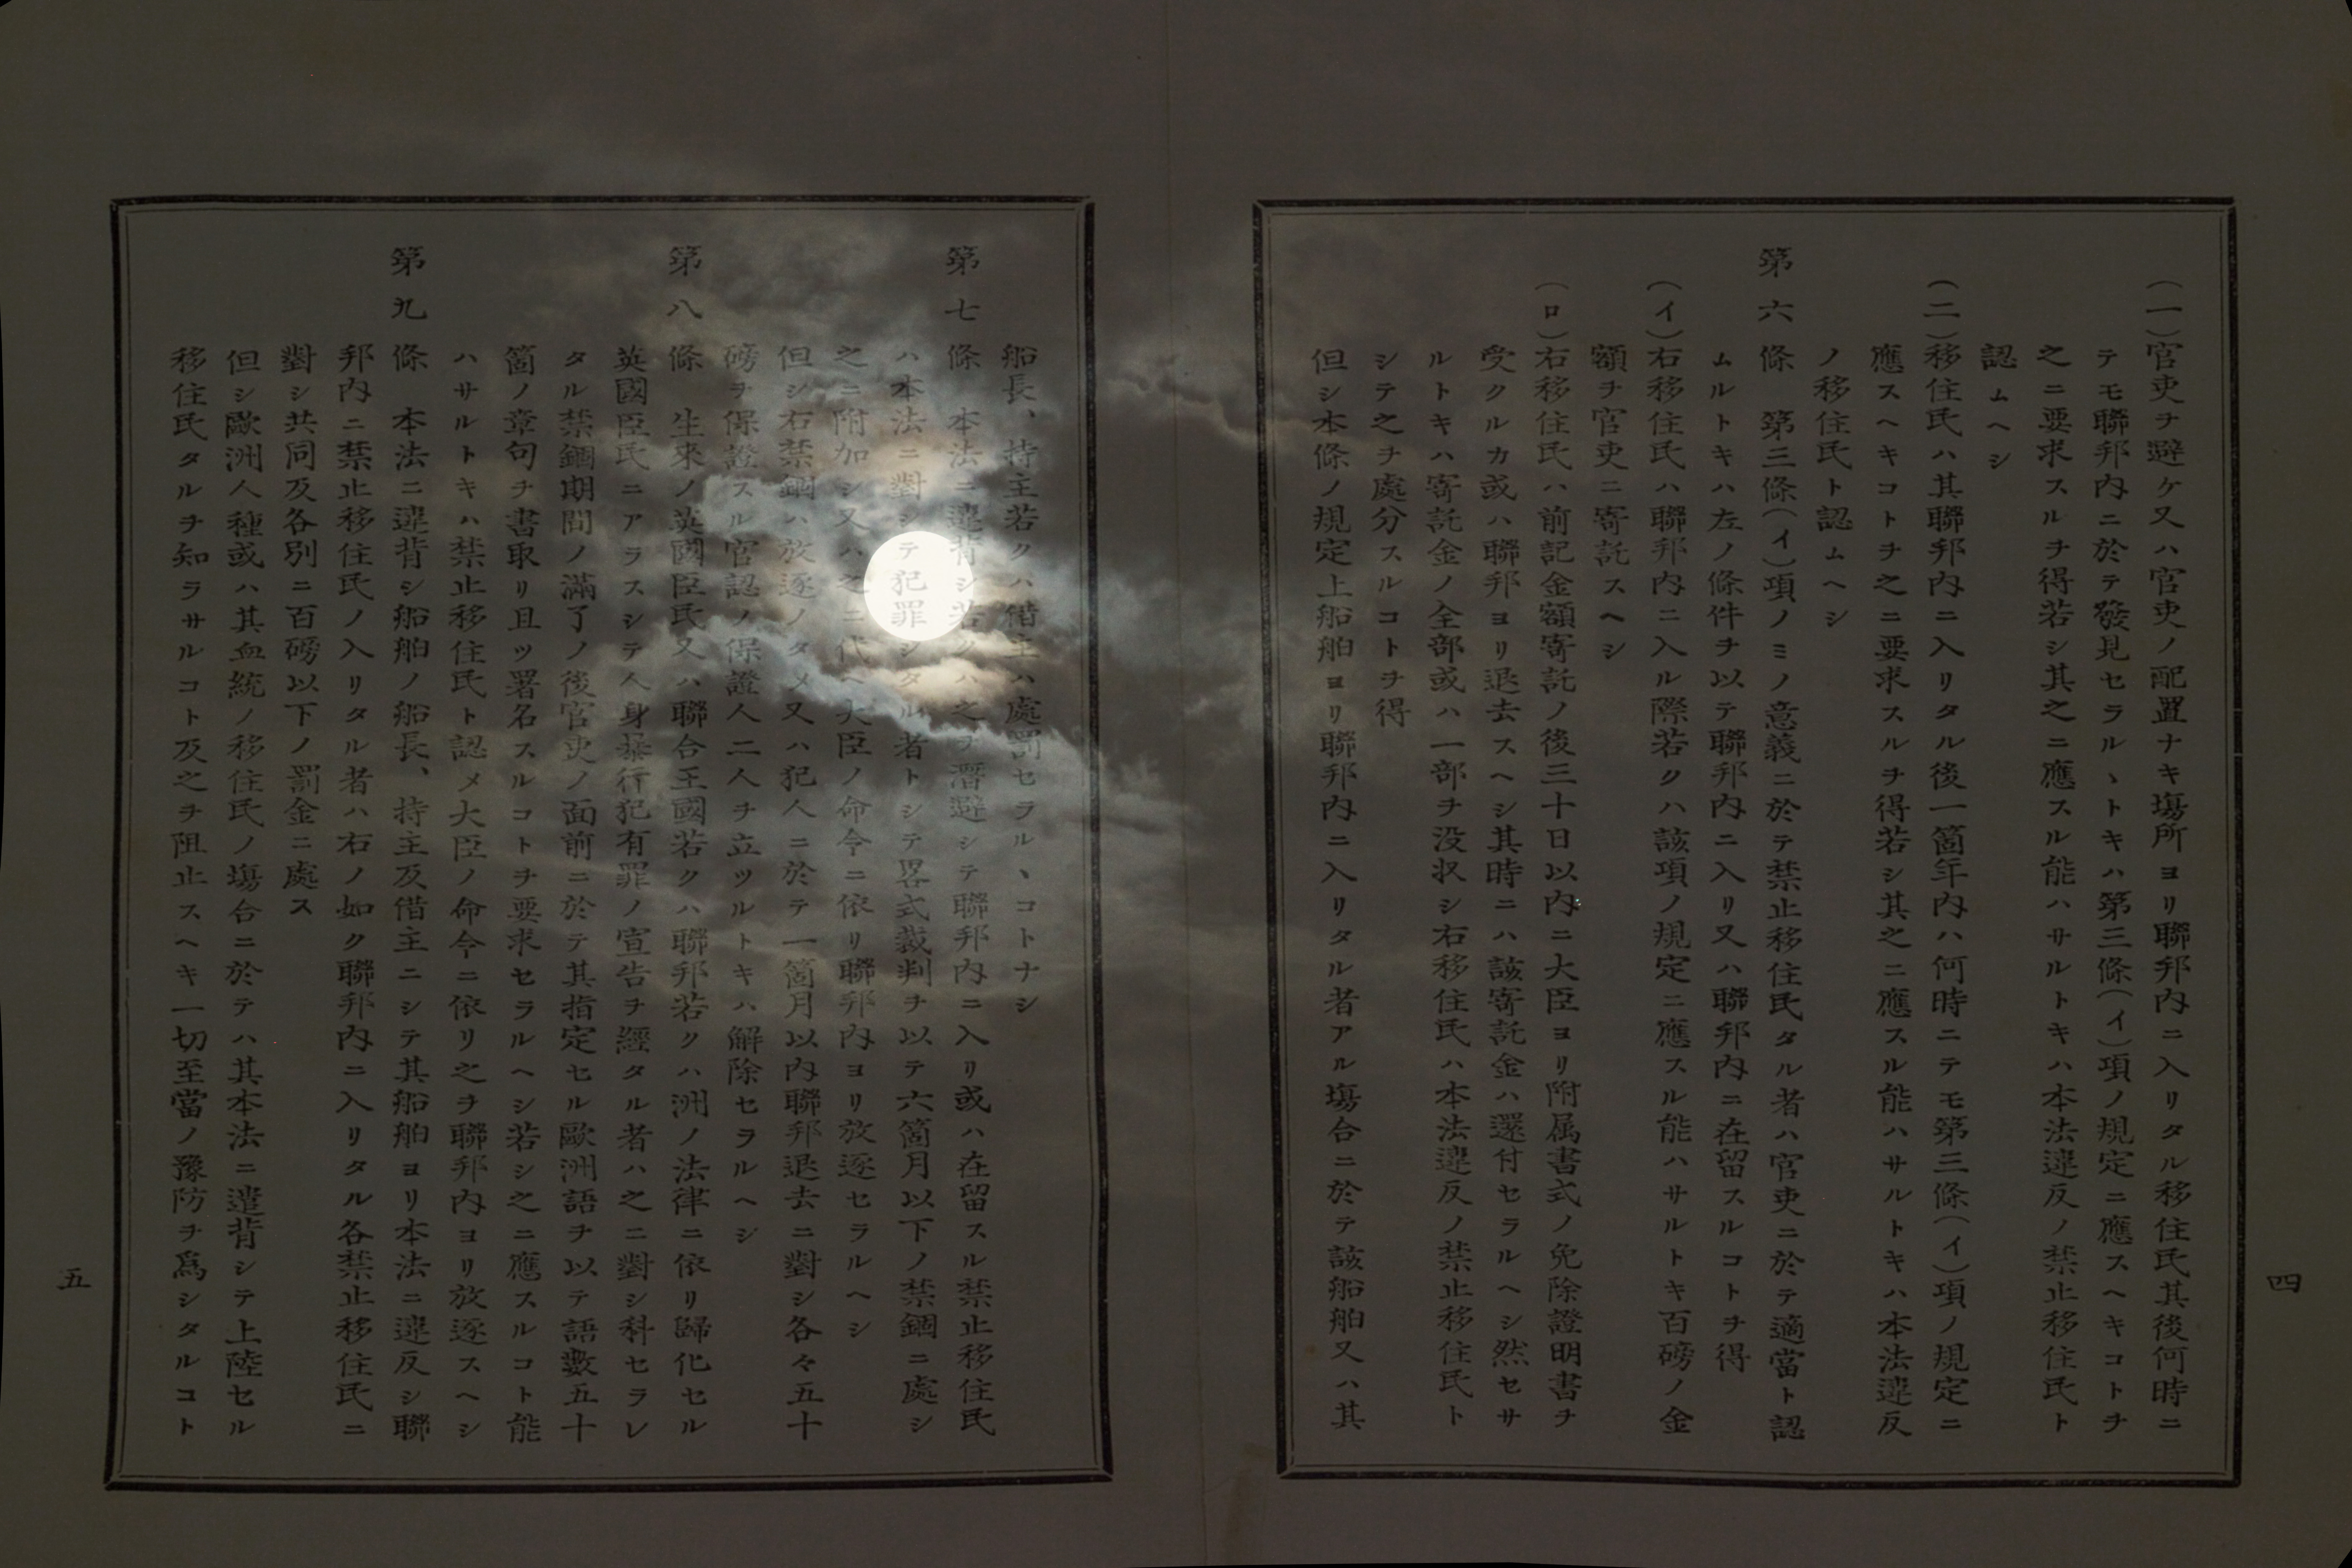 (一)官吏ヲ避ケ又ハ官吏ノ配置ナキ塲所ヨリ聯邦內ニ入リタル移住民其後何時ニ
テモ聯邦內ニ於テ發見セラルヽトキハ第三條(イ)項ノ規定ニ應スヘキコトヲ
之ニ要求スルヲ得若シ其之ニ應スル能ハサルトキハ本法違反ノ禁止移住民ト
認ムヘシ
(二)移住民ハ其聯邦內ニ入リタル後一箇年內ハ何時ニテモ第三條(イ)項ノ規定ニ
應スヘキコトヲ之ニ要求スルヲ得若シ其之ニ應スル能ハサルトキハ本法違反
ノ移住民ト認ムヘシ
第六條 第三條(イ)項ノミノ意義ニ於テ禁止移住民タル者ハ官吏ニ於テ適當ト認
ムルトキハ左ノ條件ヲ以テ聯邦內ニ入リ又ハ聯邦內ニ在留スルコトヲ得
(イ)右移住民ハ聯邦內ニ入ル際若クハ該項ノ規定ニ應スル能ハサルトキ百磅ノ金
額ヲ官吏ニ寄託スヘシ
(ロ)右移住民ハ前記金額寄託ノ後三十日以內ニ大臣ヨリ附属書式ノ免除證明書ヲ
受クルカ或ハ聯邦ヨリ退去スヘシ其時ニハ該寄託金ハ還付セラルヘシ然セサ
ルトキハ寄託金ノ全部或ハ一部ヲ没収シ右移住民ハ本法違反ノ禁止移住民ト
シテ之ヲ處分スルコトヲ得
但シ本條ノ規定上船舶ヨリ聯邦內ニ入リタル者アル塲合ニ於テ該船舶又ハ其
四
船長、持主若クハ借主ハ處罰セラルヽコトナシ
第七條 本法ニ違背シ若クハ之ヲ潛避シテ聯邦內ニ入リ或ハ在留スル禁止移住民
ハ本法ニ對シテ犯罪シタル者トシテ畧式裁判ヲ以テ六箇月以下ノ禁錮ニ處シ
之ニ附加シ又ハ之ニ代ヘ大臣ノ命令ニ依リ聯邦內ヨリ放逐セラルヘシ
但シ右禁錮ハ放逐ノタメ又ハ犯人ニ於テ一箇月以內聯邦退去ニ對シ各々五十
磅ヲ保證スル官認ノ保證人二人ヲ立ツルトキハ解除セラルヘシ
第八條 生來ノ英國臣民又ハ聯合王國若クハ聯邦若クハ洲ノ法律ニ依リ歸化セル
英國臣民ニアラスシテ人身暴行犯有罪ノ宣告ヲ經タル者ハ之ニ對シ科セラレ
タル禁錮期間ノ滿了ノ後官吏ノ面前ニ於テ其指定セル歐洲語ヲ以テ語數五十
箇ノ章句ヲ書取リ且ツ署名スルコトヲ要求セラルヘシ若シ之ニ應スルコト能
ハサルトキハ禁止移住民ト認メ大臣ノ命令ニ依リ之ヲ聯邦內ヨリ放逐スヘシ
第九條 本法ニ違背シ船舶ノ船長、持主及借主ニシテ其船舶ヨリ本法ニ違反シ聯
邦內ニ禁止移住民ノ入リタル者ハ右ノ如ク聯邦內ニ入リタル各禁止移住民ニ
對シ共同及各別ニ百磅以下ノ罰金ニ處ス
但シ歐洲人種或ハ其血統ノ移住民ノ塲合ニ於テハ其本法ニ違背シテ上陸セル
移住民タルヲ知ラサルコト及之ヲ阻止スヘキ一切至當ノ豫防ヲ爲シタルコト
五